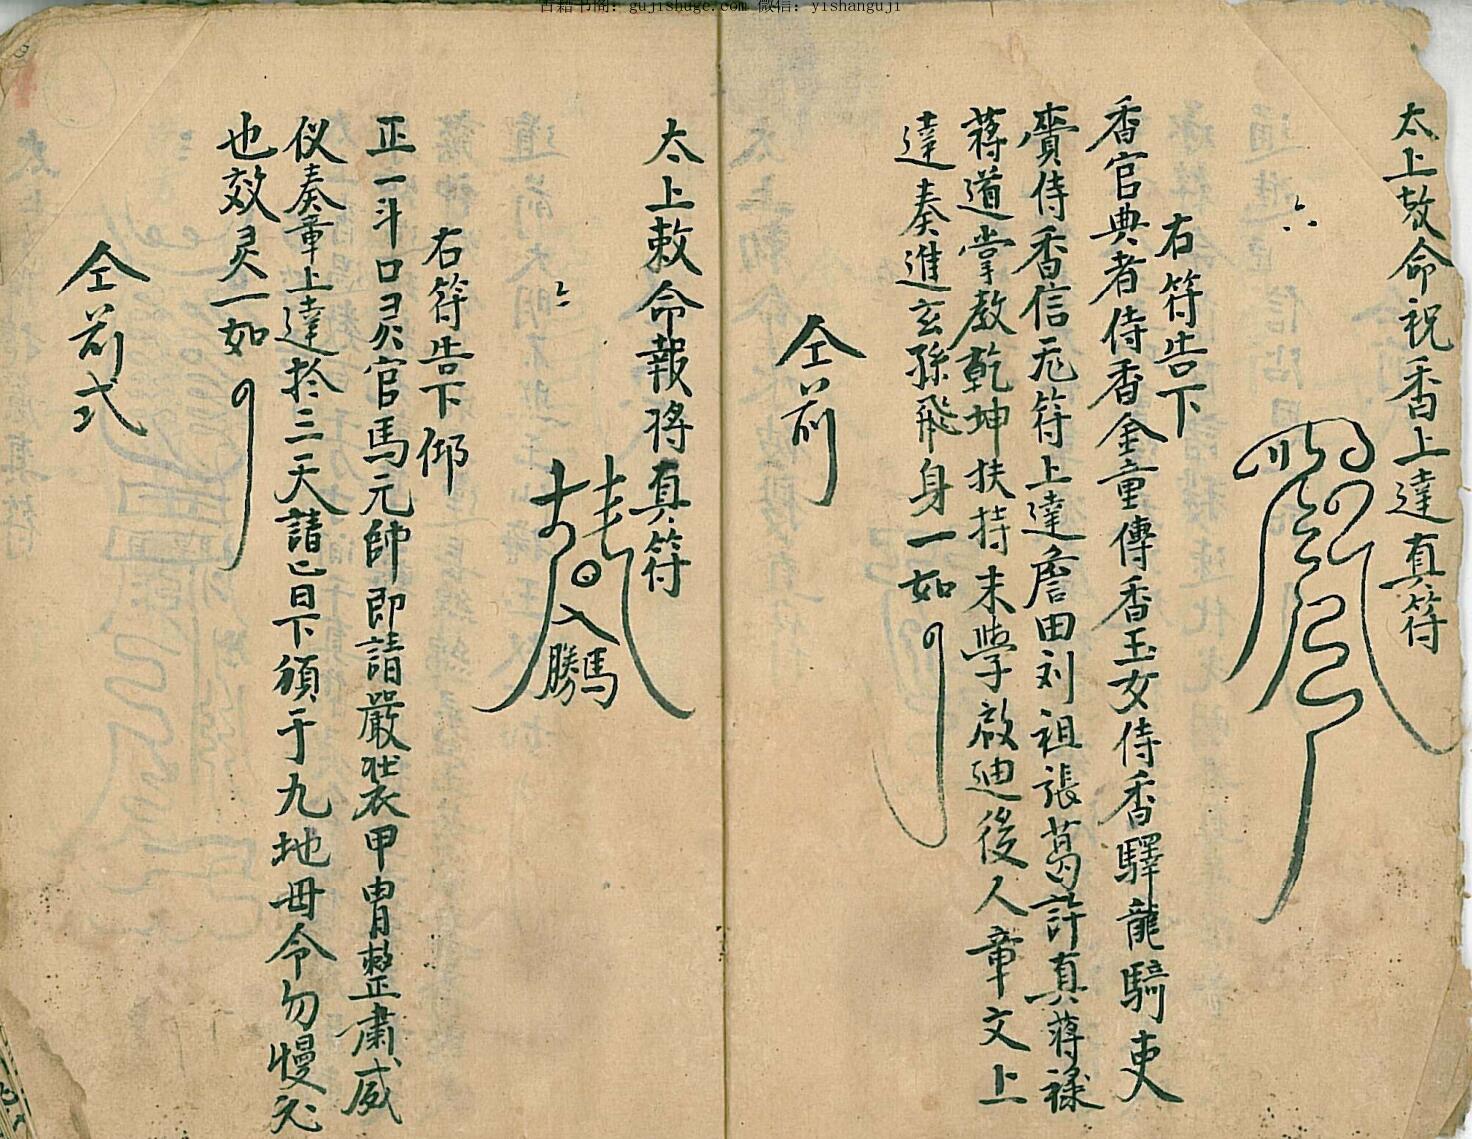 古籍书阁: gujishuge.com 微信: yishanguji
太上敕命祝香上達真符
右符告下
香官典者侍香金童傳香玉女侍香驛龍騎吏
賫侍香信 符上達詹田刘祖張葛許真蒋禄
蒋道掌教乾坤扶持末學啟迪後人章文上
達奏進玄孫飛身一如
仝前
太上敕命報将真符
馬
騰
右符告下仰
正一斗口灵官馬元帥即請嚴裝甲胄整肅威
仪奏章上達於三天請 日下頒于九地毌令勿慢
也效灵一如
仝前式